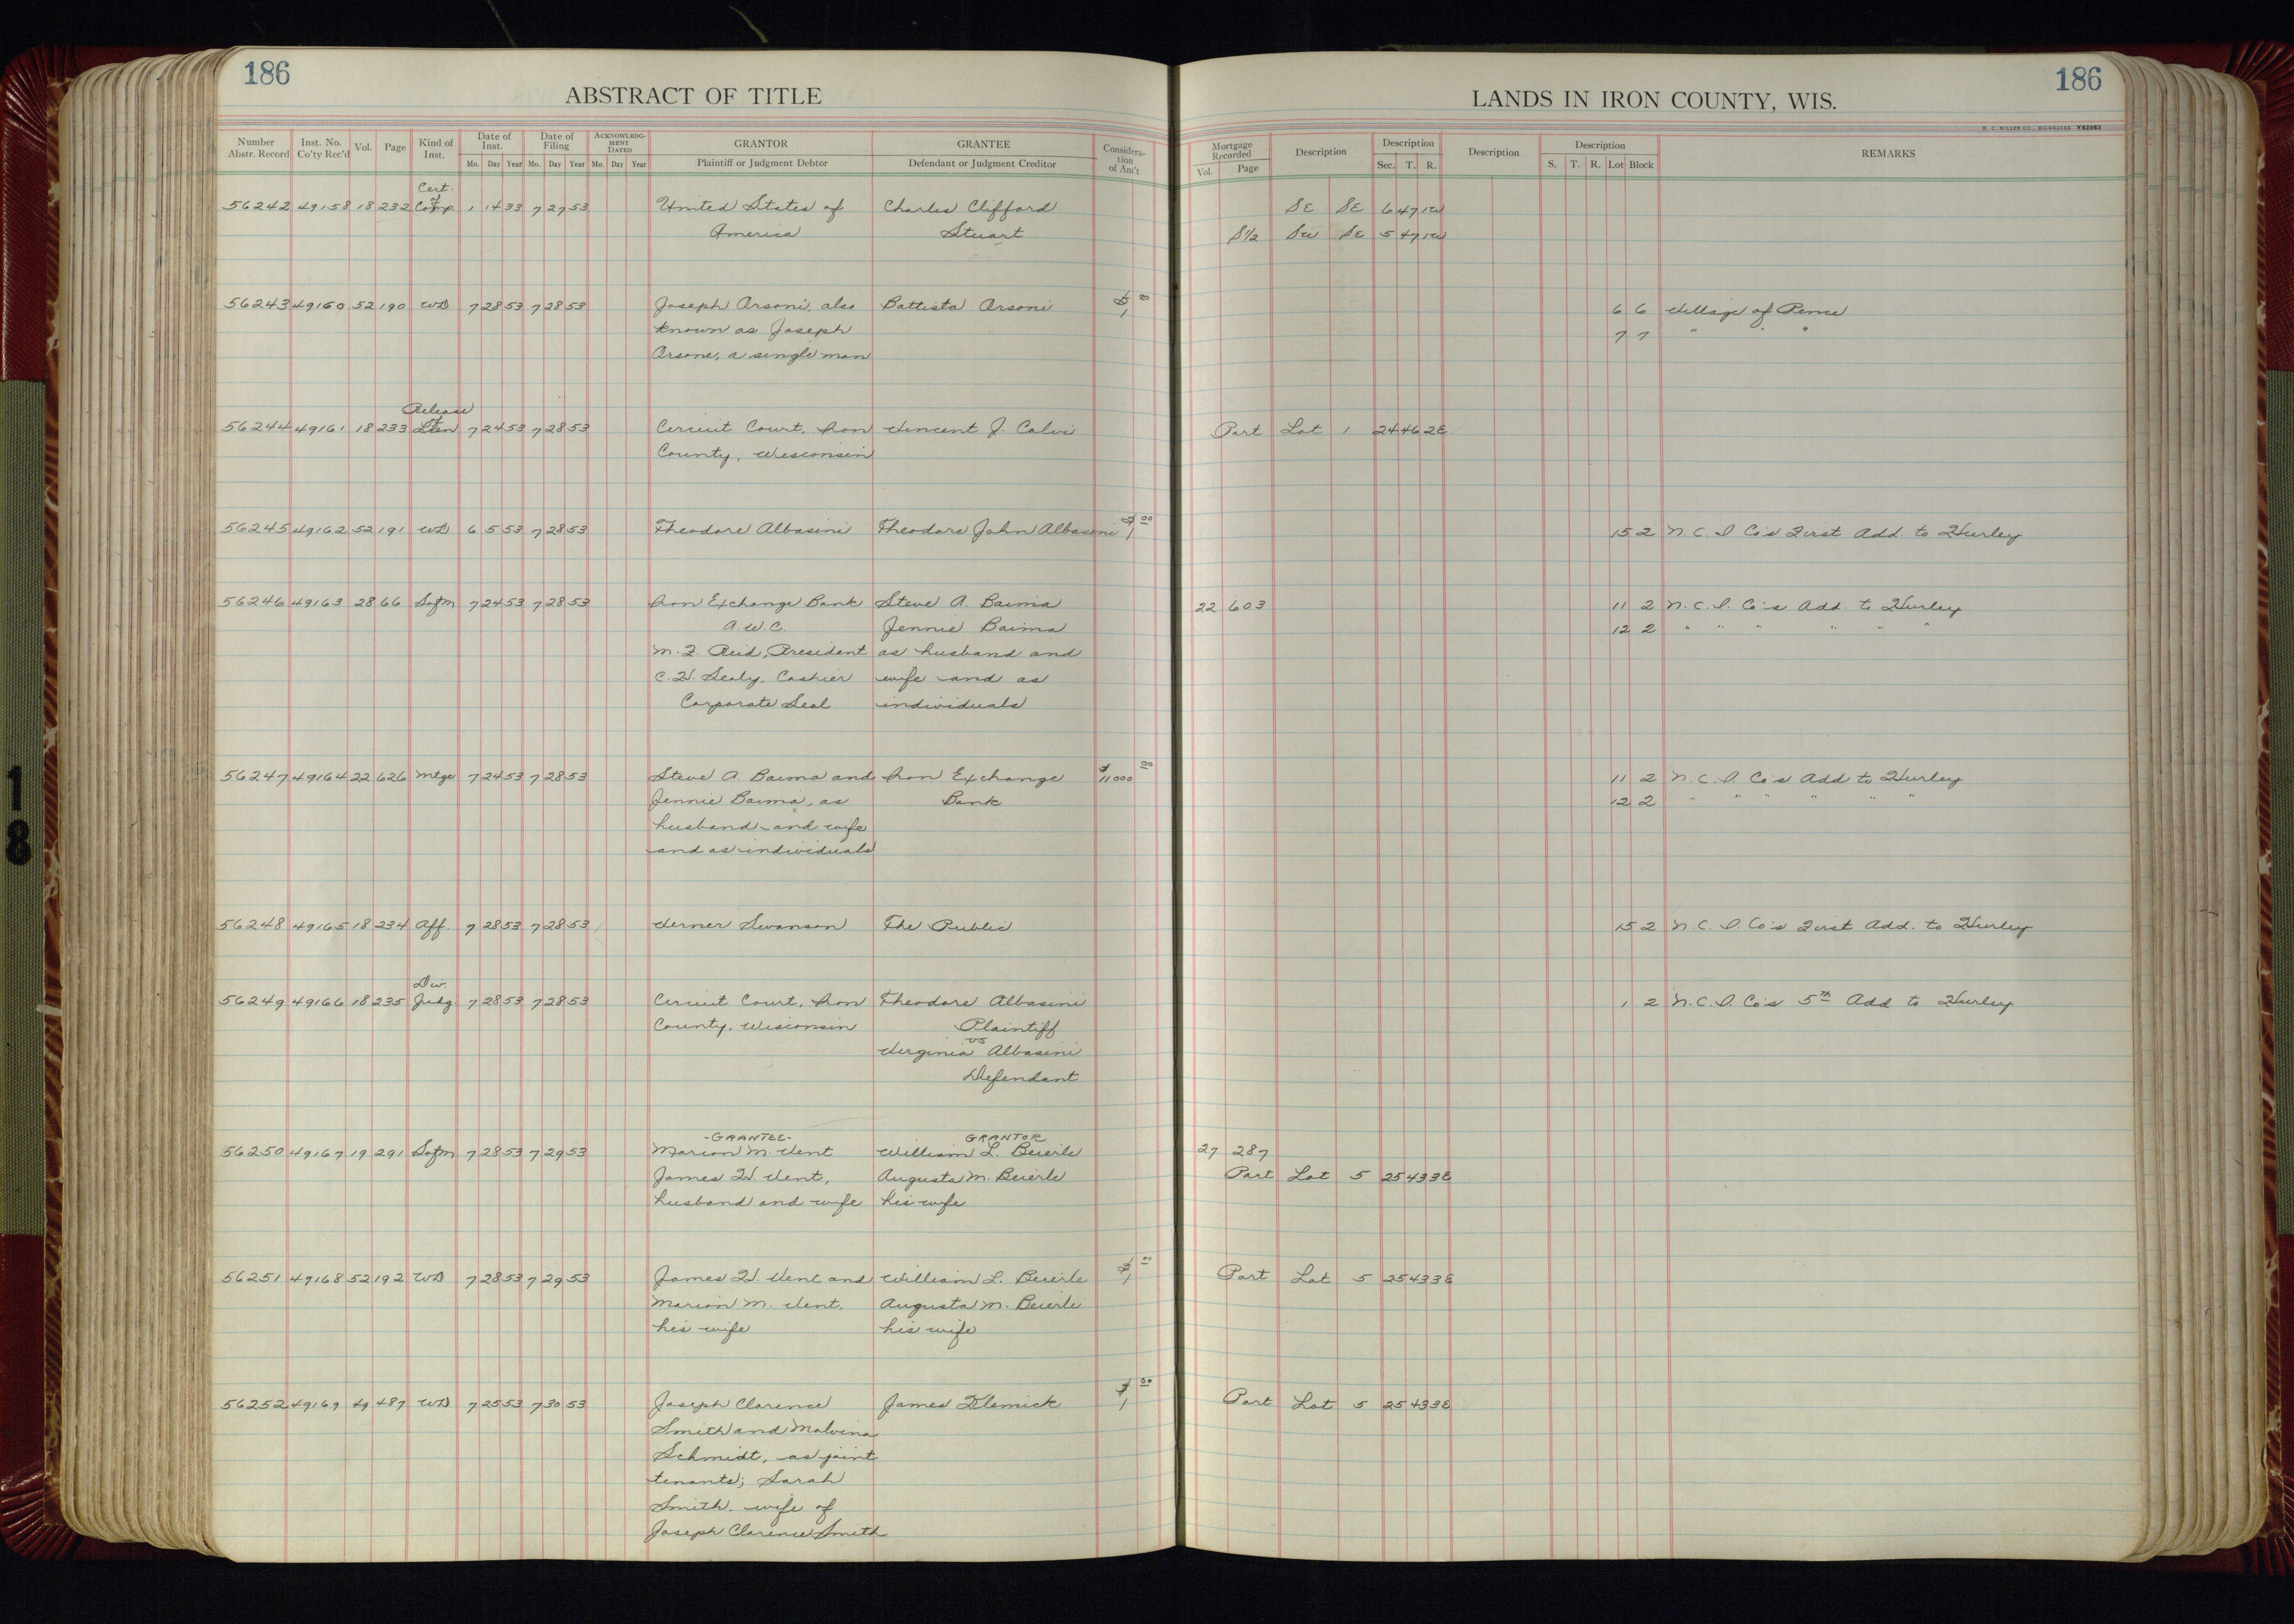 186
ABSTRACT OF TITLE
Number Abstr. Record Inst. No. Co'ty Rec'd Vol. Page Kind of Inst. Date of Inst. Mo. Day Year Date of Filing Mo. Day Year ACKNOWLEDG-MENT DATED Mo. Day Year GRANTOR Plaintiff or Judgment Debtor GRANTEE Defendant or Judgment Creditor Considera-tion of Am't
Cert. of
56242 49158 18 232 Comp. 1 14 33 7 27 53 United States of Charles Clifford
America Stuart
56243 49160 52 190 WD 7 28 53 7 28 53 Joseph Orsoni, also Battista Orsoni $1 00
known as Joseph
Orsone, a single man
Release of
56244 49161 18 233 Lien 7 24 53 7 28 53 Circuit Court, Iron Vincent J. Calvi
County, Wisconsin
56245 49162 52 191 WD 6 5 53 7 28 53 Theodore Albasini Theodore John Albasini $1 00
56246 49163 28 66 Sofm 7 24 53 7 28 53 Iron Exchange Bank Steve A. Baima
A.W.C. Jennie Baima
M.F. Reid, President as husband and
C.H. Sealy, Cashier wife and as
Corporate Seal individuals
56247 49164 22 626 Mtge 7 24 53 7 28 53 Steve A. Baima and Iron Exchange $11000 00
Jennie Baima, as Bank
husband and wife
and as individuals
56248 49165 18 234 Aff. 7 28 53 7 28 53 Verner Swanson The Public
Div.
56249 49166 18 235 Judg. 7 28 53 7 28 53 Circuit Court, Iron Theodore Albasini
County, Wisconsin Plaintiff
vs
Virginia Albasini
Defendant
-GRANTEE- GRANTOR
56250 49167 19 291 Sofm 7 28 53 7 29 53 Marion M. Vent William L. Beierle
James H. Vent, Augusta M. Beierle
husband and wife his wife
56251 49168 52 192 WD 7 28 53 7 29 53 James H. Vent and William L. Beierle $1 00
Marion M. Vent, Augusta M. Beierle
his wife his wife
56252 49169 49 487 WD 7 25 53 7 30 53 Joseph Clarence James Klemick $1 00
Smith and Malvina
Schmidt, as joint
tenants; Sarah
Smith, wife of
Joseph Clarence Smith
186
LANDS IN IRON COUNTY, WIS.
H. C. MILLER CO., MILWAUKEE Y62963
Mortgage Recorded Vol. Page Description Description Sec. T. R. Description Description S. T. R. Lot Block REMARKS
SE SE 6 47 1W
S½ SW SE 5 47 1W
6 6 Village of Pence
7 7 " " "
Part Lot 1 24 46 2E
15 2 N.C.I. Co's First Add. to Hurley
22 603 11 2 N.C.I. Co's Add. to Hurley
12 2 " " " " " "
11 2 N.C.I. Co's Add to Hurley
12 2 " " " " " "
15 2 N.C.I. Co's First Add. to Hurley
1 2 N.C.I. Co's 5th Add to Hurley
27 287
Part Lot 5 25 43 3E
Part Lot 5 25 43 3E
Part Lot 5 25 43 3E
18